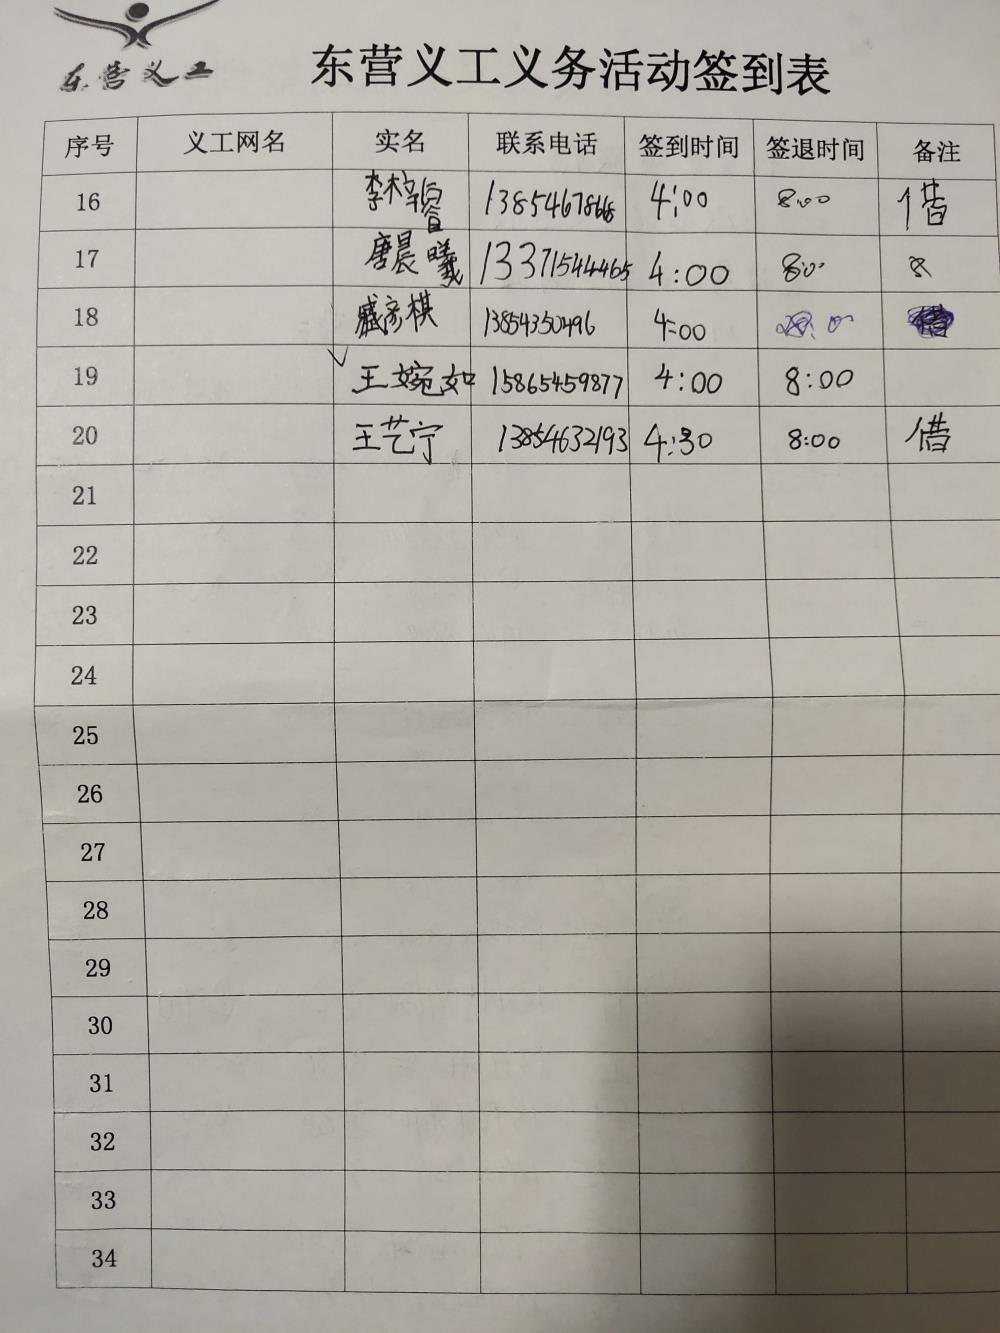 东营义工
东营义工义务活动签到表
序号 义工网名 实名 联系电话 签到时间 签退时间 备注
16 李梓睿 13854678668 4:00 8:00 借
17 唐晨曦 13371544465 4:00 8:00
18 臧彦棋 13854350496 4:00
19 王婉如 15865459877 4:00 8:00
20 王艺宁 13854632193 4:30 8:00 借
21
22
23
24
25
26
27
28
29
30
31
32
33
34